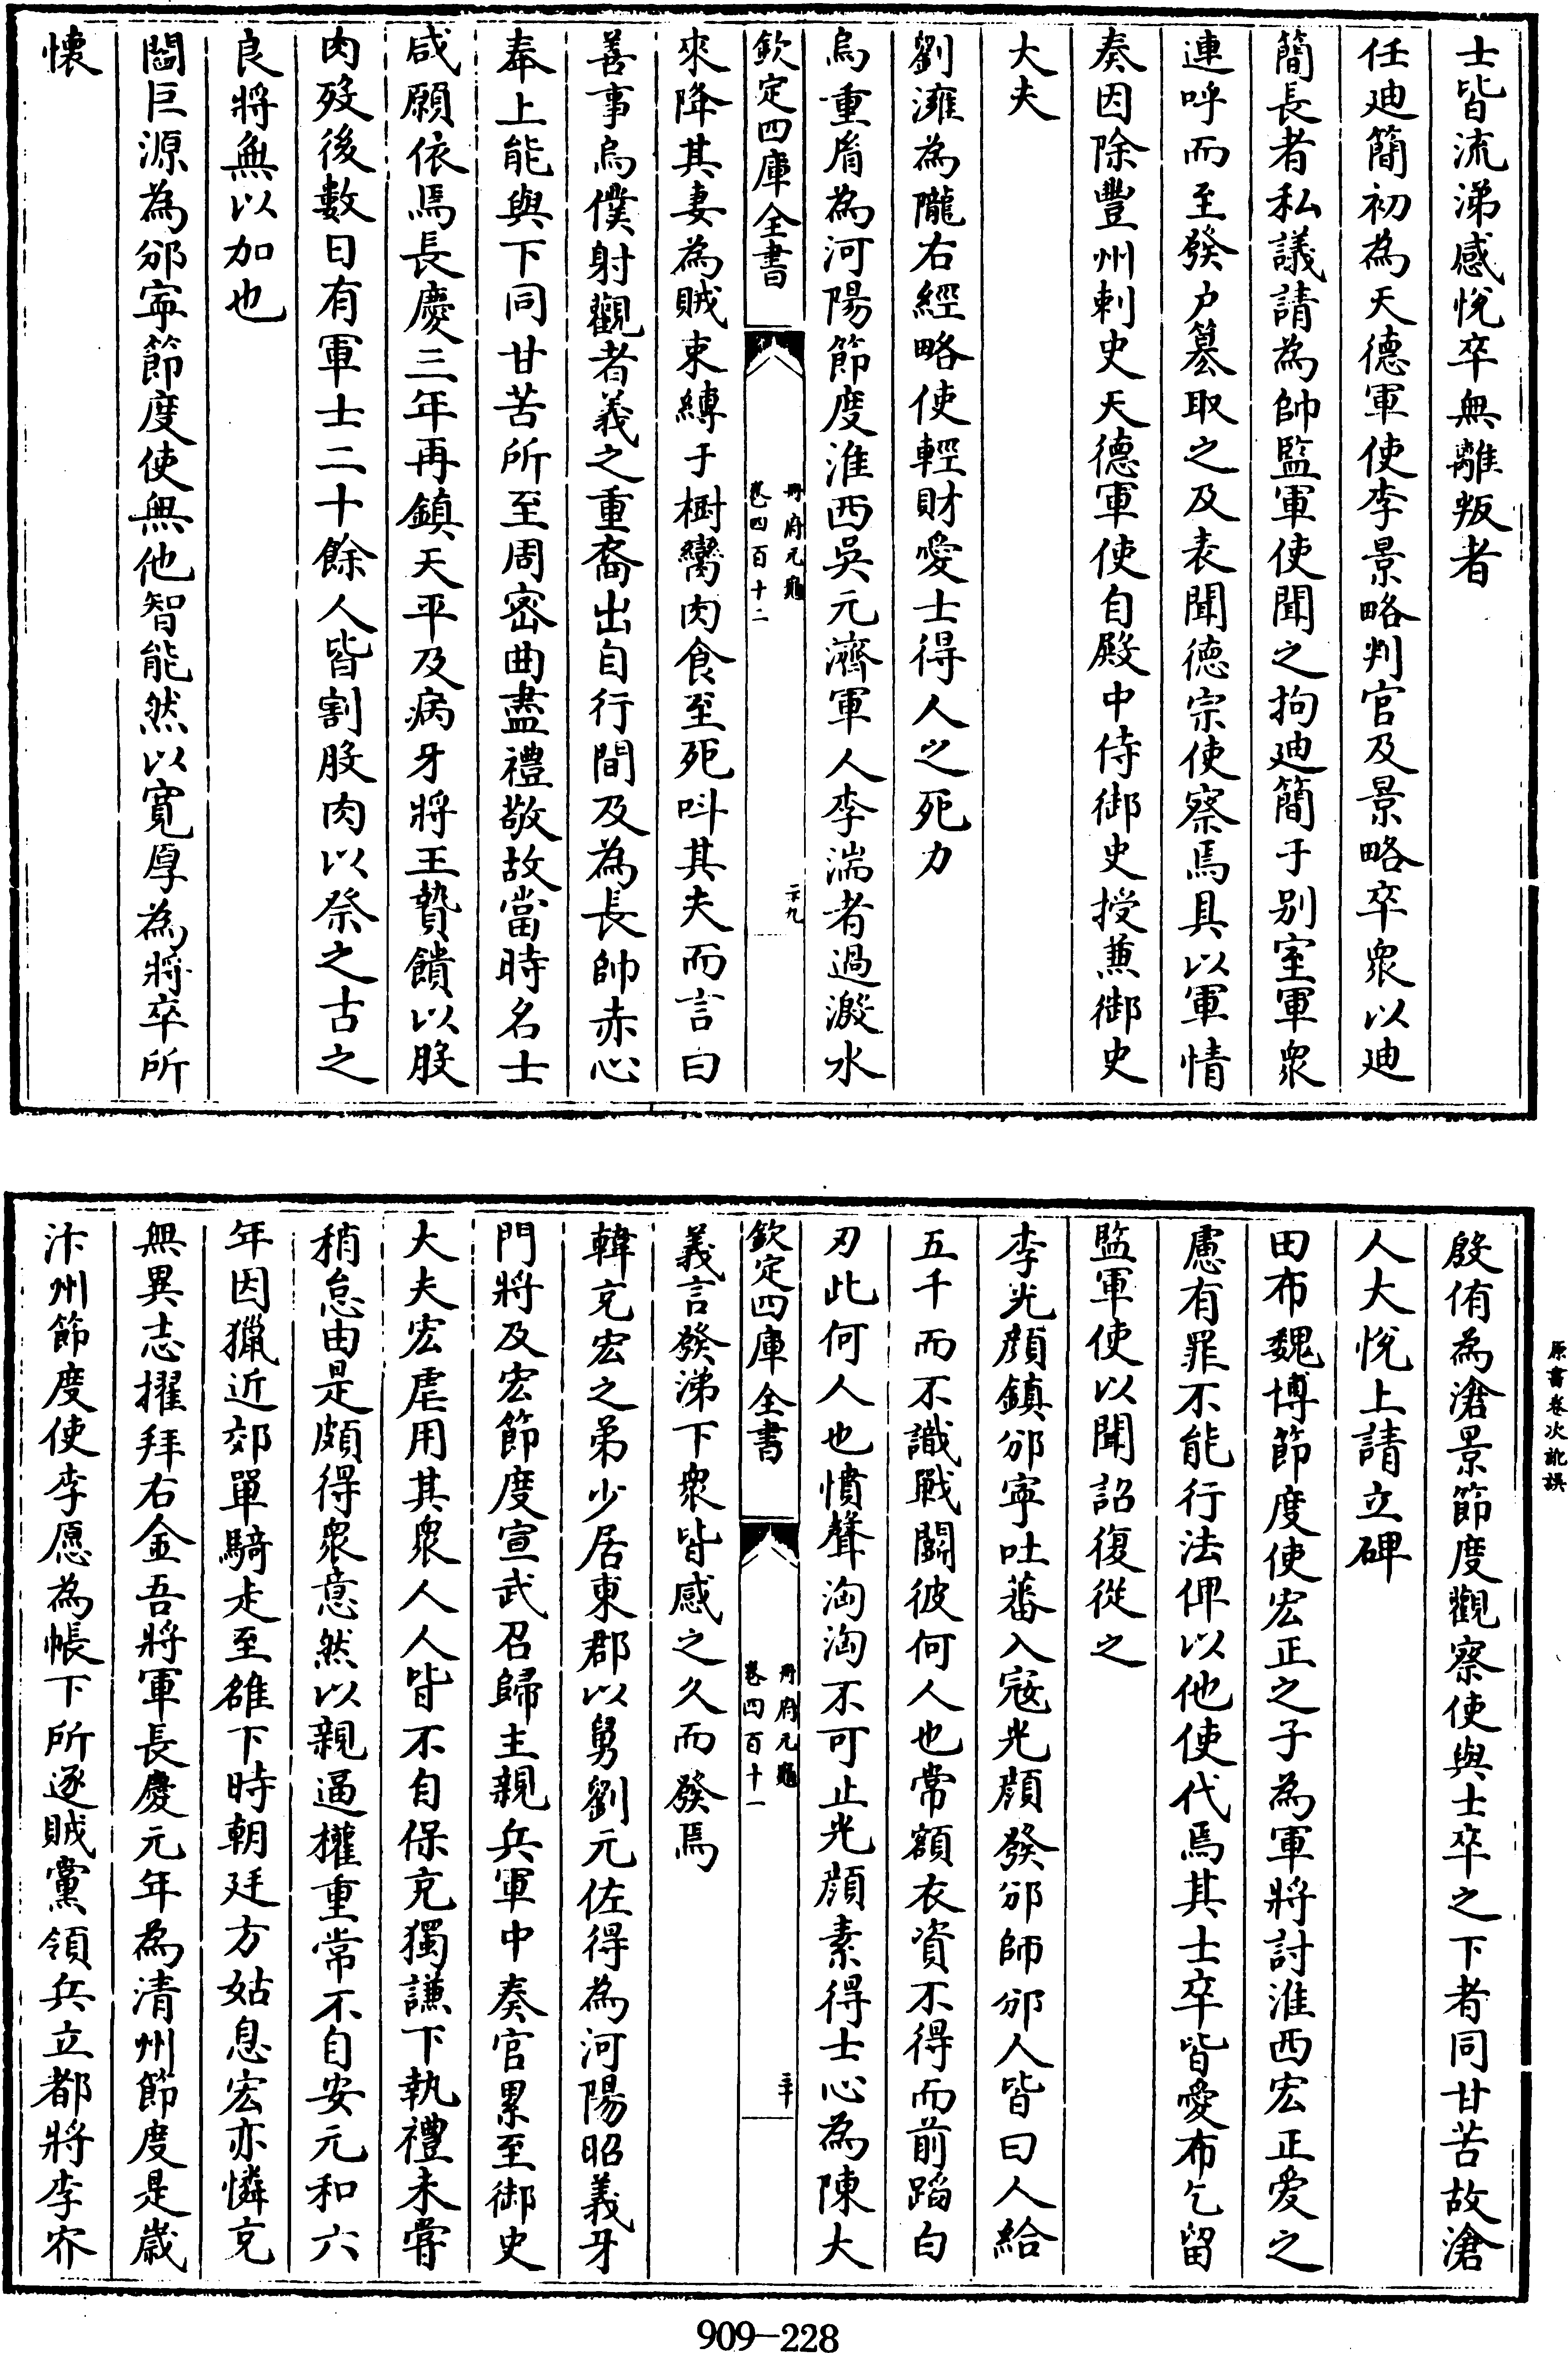 士皆流涕感悅卒無離叛者
任廸簡初為天德軍使李景略判官及景略卒衆以廸
簡長者私議請為帥監軍使聞之拘廸簡于别室軍衆
連呼而至發户簒取之及表聞德宗使察焉具以軍情
奏因除豐州刺史天德軍使自殿中侍御史授兼御史
大夫
劉澭為隴右經略使輕財愛士得人之死力
烏重脣為河陽節度淮西吳元濟軍人李湍者過溵水
欽定四庫全書
冊府元龜
卷四百十二
二十九
來降其妻為賊束縛于樹臠肉食至死呌其夫而言曰
善事烏僕射觀者義之重裔出自行間及為長帥赤心
奉上能與下同甘苦所至周密曲盡禮敬故當時名士
咸願依焉長慶三年再鎮天平及病牙將王贄饋以股
肉歿後數日有軍士二十餘人皆割股肉以祭之古之
良將無以加也
閻巨源為邠寧節度使無他智能然以寛厚為將卒所
懷
殷侑為滄景節度觀察使與士卒之下者同甘苦故滄
人大悅上請立碑
田布魏博節度使宏正之子為軍將討淮西宏正愛之
慮有罪不能行法俾以他使代焉其士卒皆愛布乞留
監軍使以聞詔復從之
李光顔鎮邠寧吐蕃入寇光顔發邠師邠人皆曰人給
五千而不識戰鬭彼何人也常額衣資不得而前蹈白
刃此何人也憤聲洶洶不可止光顔素得士心為陳大
欽定四庫全書
冊府元龜
卷四百十一
三十
義言發涕下衆皆感之久而發焉
韓充宏之弟少居東郡以舅劉元佐得為河陽昭義牙
門將及宏節度宣武召歸主親兵軍中奏官累至御史
大夫宏虐用其衆人人皆不自保充獨謙下執禮未甞
稍怠由是頗得衆意然以親逼權重常不自安元和六
年因獵近郊單騎走至雒下時朝廷方姑息宏亦憐充
無異志擢拜右金吾將軍長慶元年為清州節度是歲
汴州節度使李愿為帳下所逐賊黨領兵立都將李㝏
原書卷次訛誤
909-228